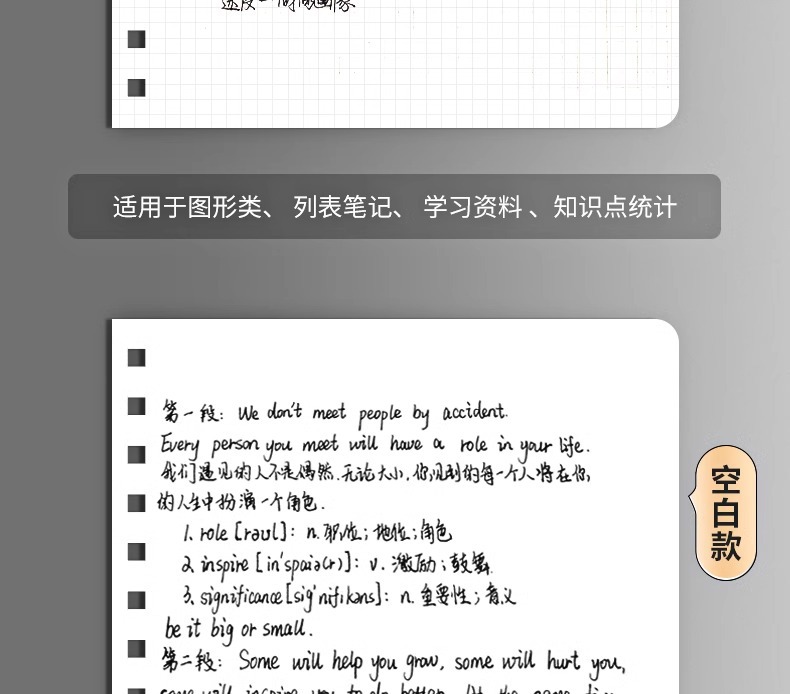 速度一时间图象
适用于图形类、 列表笔记、 学习资料 、知识点统计
第一段: We don't meet people by accident.
Every person you meet will have a role in your life.
我们遇见的人不是偶然.无论大小,你见到的每一个人将在你,
的人生中扮演一个角色.
1. role [rəʊl]: n. 职位; 地位; 角色
2. inspire [in'spaiə(r)]: v. 激励; 鼓舞.
3. significance[sig'nifikəns]: n. 重要性; 意义
be it big or small.
第二段: Some will help you grow, some will hurt you,
some will inspire you to do better. At the same
空白款